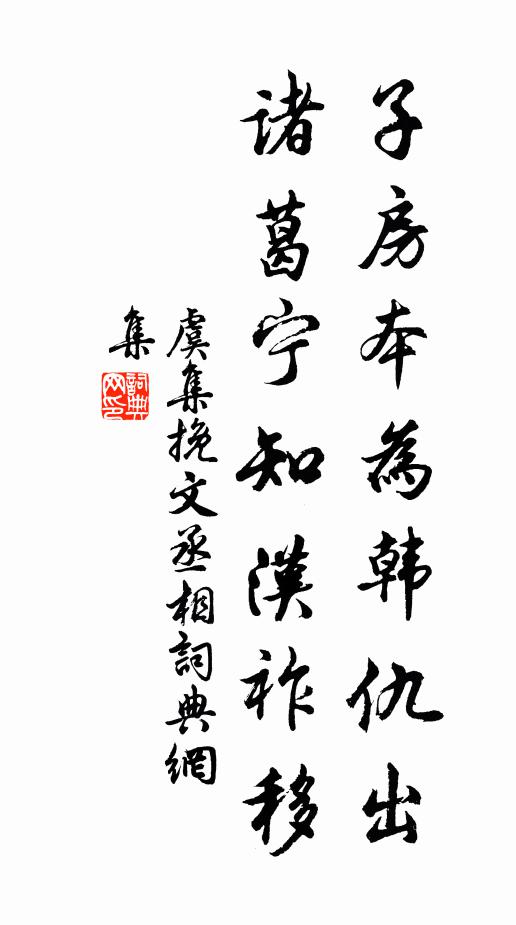 子房本為韩仇出
诸葛宁知漢祚移
虞集挽文丞相詞典網
集
詞典
网印